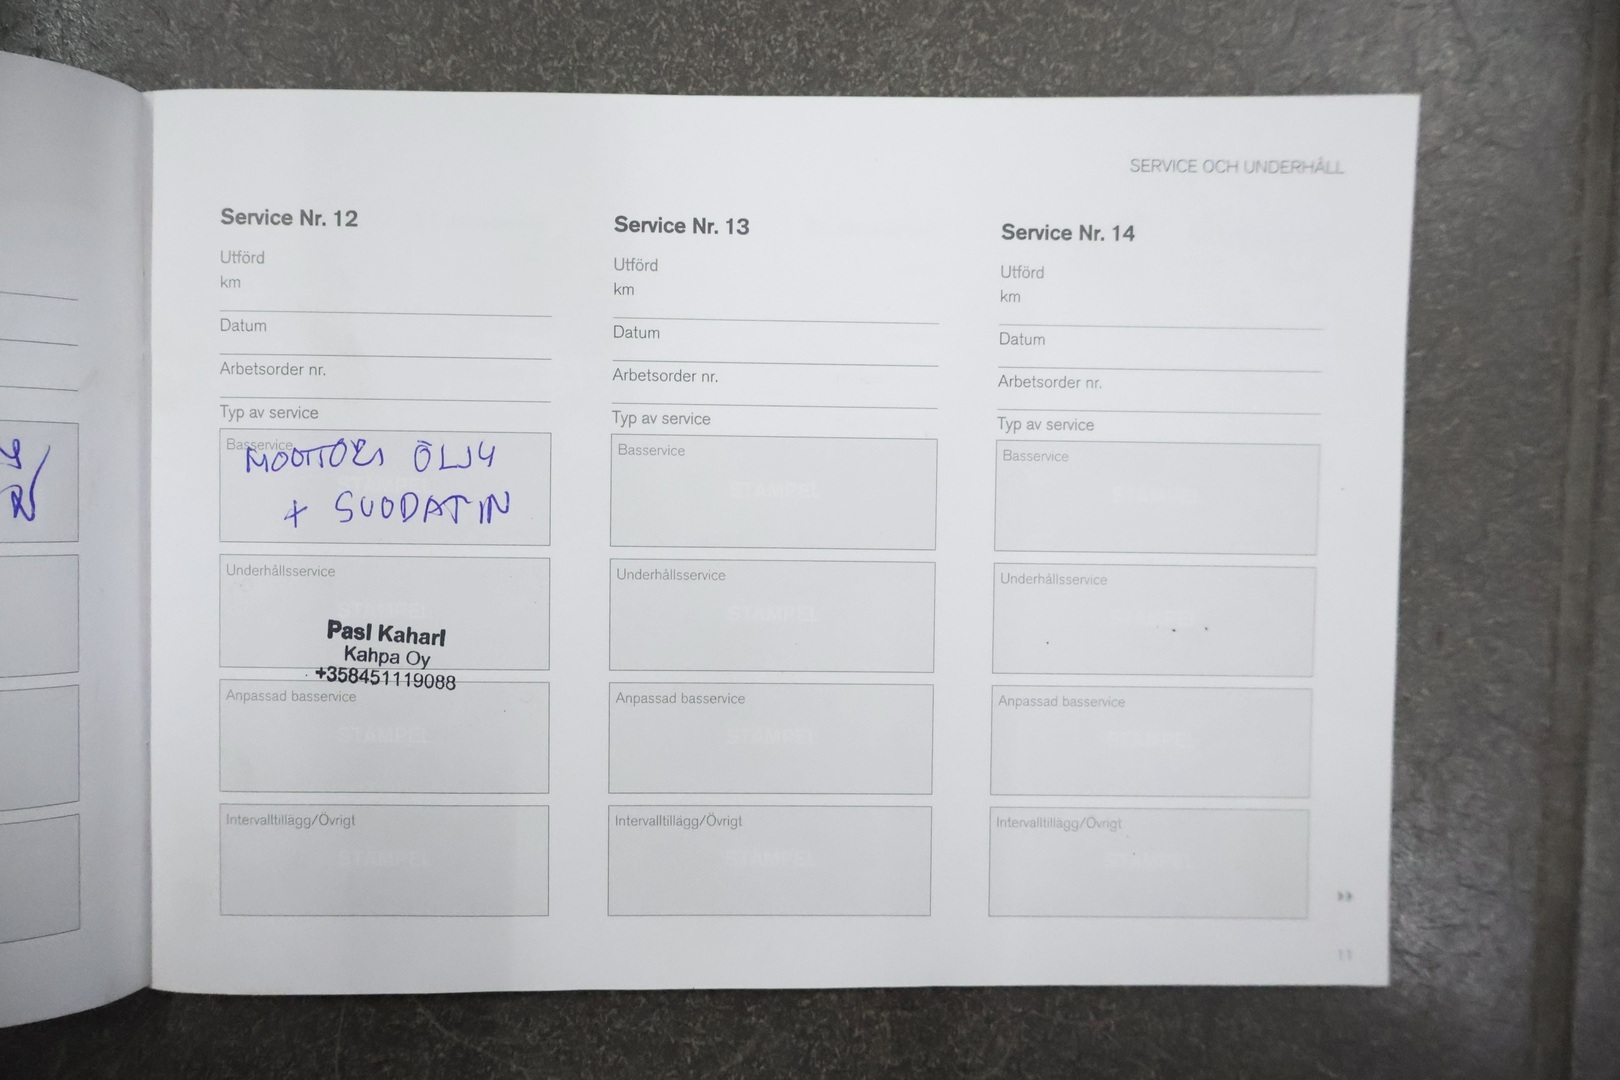 SERVICE OCH UNDERHÅLL
Service Nr. 12
Utförd
km
Datum
Arbetsorder nr.
Typ av service
Basservice
MOOTTORI ÖLJY
+ SUODATIN
Underhållsservice
STAMPEL
PasI KaharI
Kahpa Oy
+358451119088
Anpassad basservice
STAMPEL
Intervalltillägg/Övrigt
STAMPEL
Service Nr. 13
Utförd
km
Datum
Arbetsorder nr.
Typ av service
Basservice
STAMPEL
Underhållsservice
STAMPEL
Anpassad basservice
STAMPEL
Intervalltillägg/Övrigt
STAMPEL
Service Nr. 14
Utförd
km
Datum
Arbetsorder nr.
Typ av service
Basservice
STAMPEL
Underhållsservice
STAMPEL
Anpassad basservice
STAMPEL
Intervalltillägg/Övrigt
STAMPEL
11